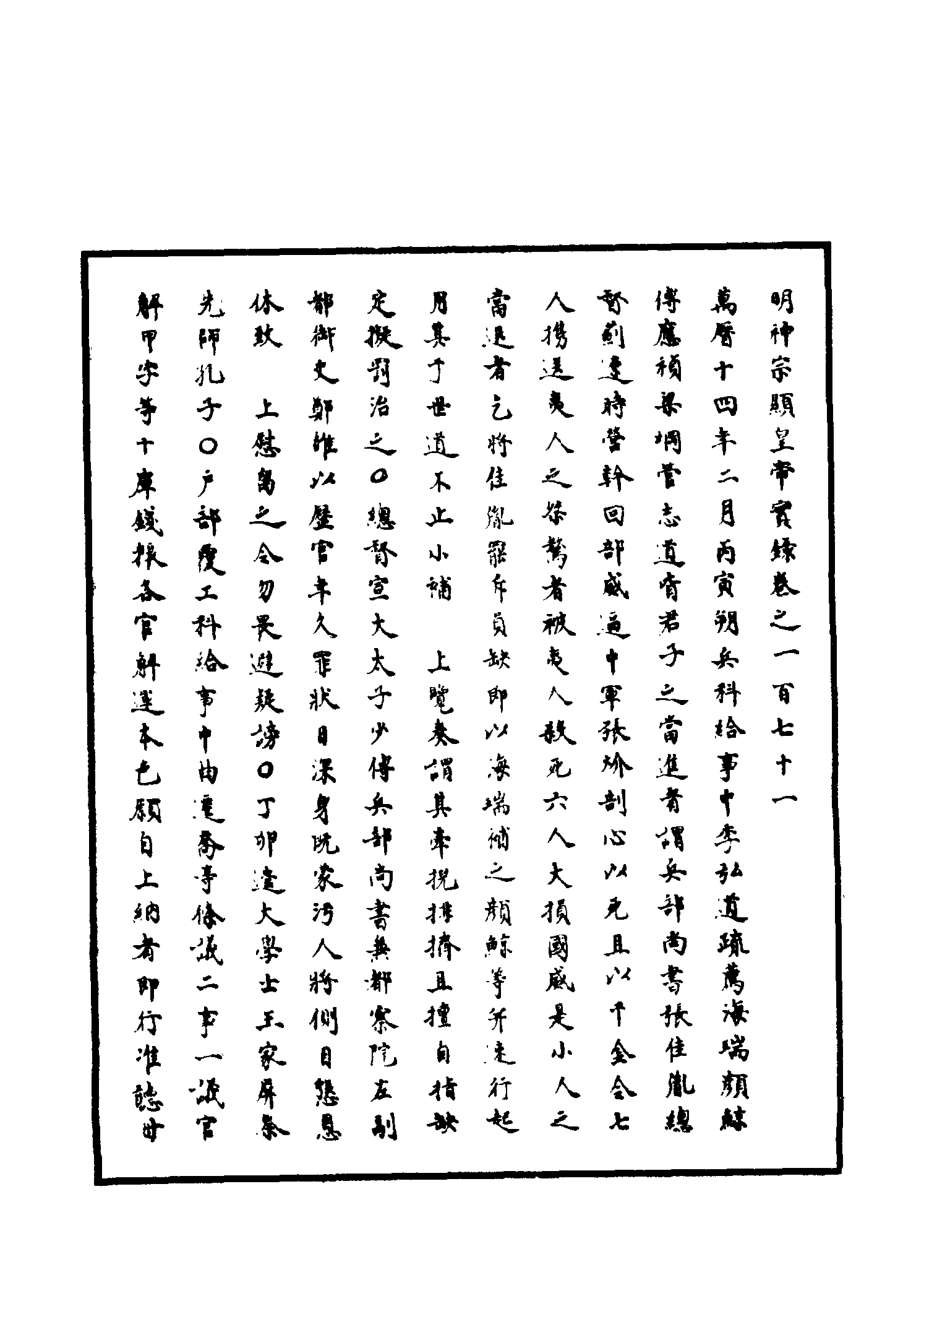 明神宗顯皇帝實錄卷之一百七十一
萬曆十四年二月丙寅朔兵科給事中李弘道疏薦海瑞顏鯨
傅應禎梁綱管志道皆君子之當進者謂兵部尚書張佳胤總
督薊遼時營幹回部威逼中軍張玠剖心以死且以千金令七
人携送夷人之桀驁者被夷人殺死六人大損國威是小人之
當退者乞將佳胤罷斥員缺即以海瑞補之顏鯨等并速行起
用其于世道不止小補　上覽奏謂其牽挽排擠且擅自指缺
定擬罰治之〇總督宣大太子少傅兵部尚書兼都察院左副
都御史鄭雒以歷官年久罪狀日深身既蒙污人將側目懇恩
休致　上慰留之令勿畏避疑謗〇丁卯遣大學士王家屏祭
先師孔子〇户部覆工科給事中曲遷喬等條議二事一議官
解甲字等十庫錢粮各官解選本色願自上納者即行准聽毋